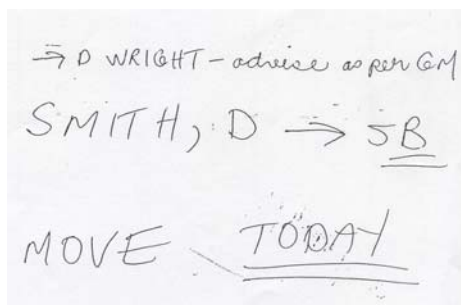 → D WRIGHT - advise as per GM
SMITH, D → 5B
MOVE TODAY